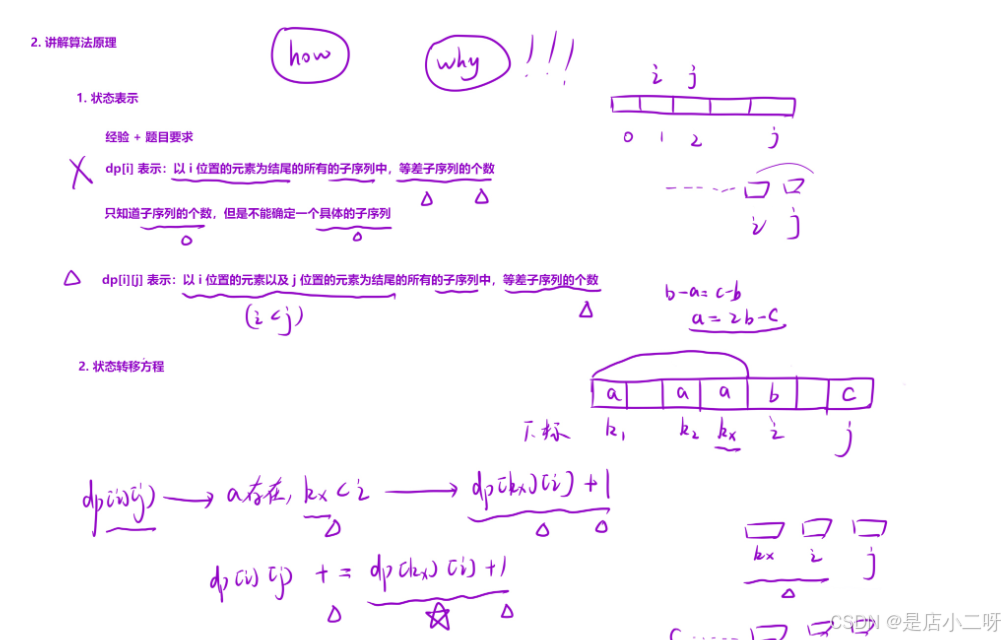 2. 讲解算法原理
how
why !!!
1. 状态表示
i j
0 1 2 j
经验 + 题目要求
dp[i] 表示：以 i 位置的元素为结尾的所有的子序列中，等差子序列的个数
i j
只知道子序列的个数，但是不能确定一个具体的子序列
dp[i][j] 表示：以 i 位置的元素以及 j 位置的元素为结尾的所有的子序列中，等差子序列的个数
(i<j)
b-a=c-b
a=2b-c
2. 状态转移方程
a a a b c
下标 k₁ k₂ kx i j
dp[i][j] → a存在, kx<i → dp[kx][i]+1
dp[i][j] += dp[kx][i]+1
kx i j
CSDN @是店小二呀